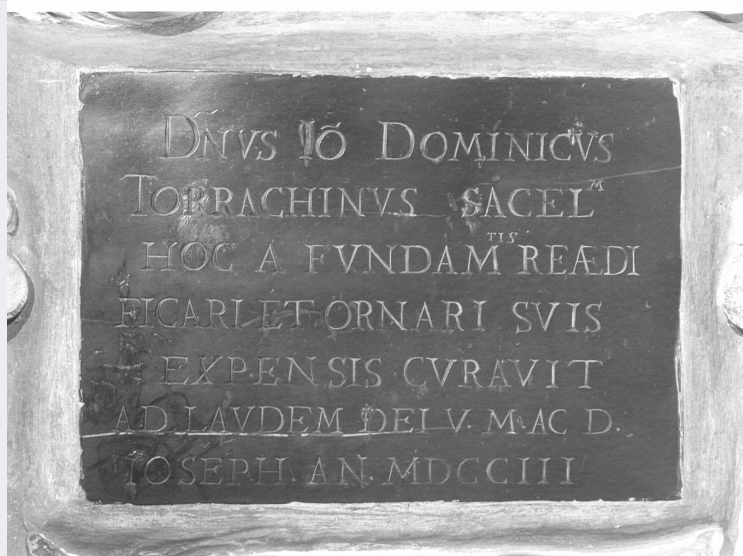 DÑVS IÕ DOMINICVS
TORRACHINVS SACELᴹ
HOC A FVNDAMᵀᴵˢ REÆDI
FICARI ET ORNARI SVIS
EXPENSIS CVRAVIT
AD LAVDEM DEI V. M. AC D.
IOSEPH. AN. MDCCIII